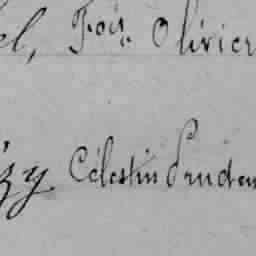 el, Fois Olivier
zy Célestin Pruden